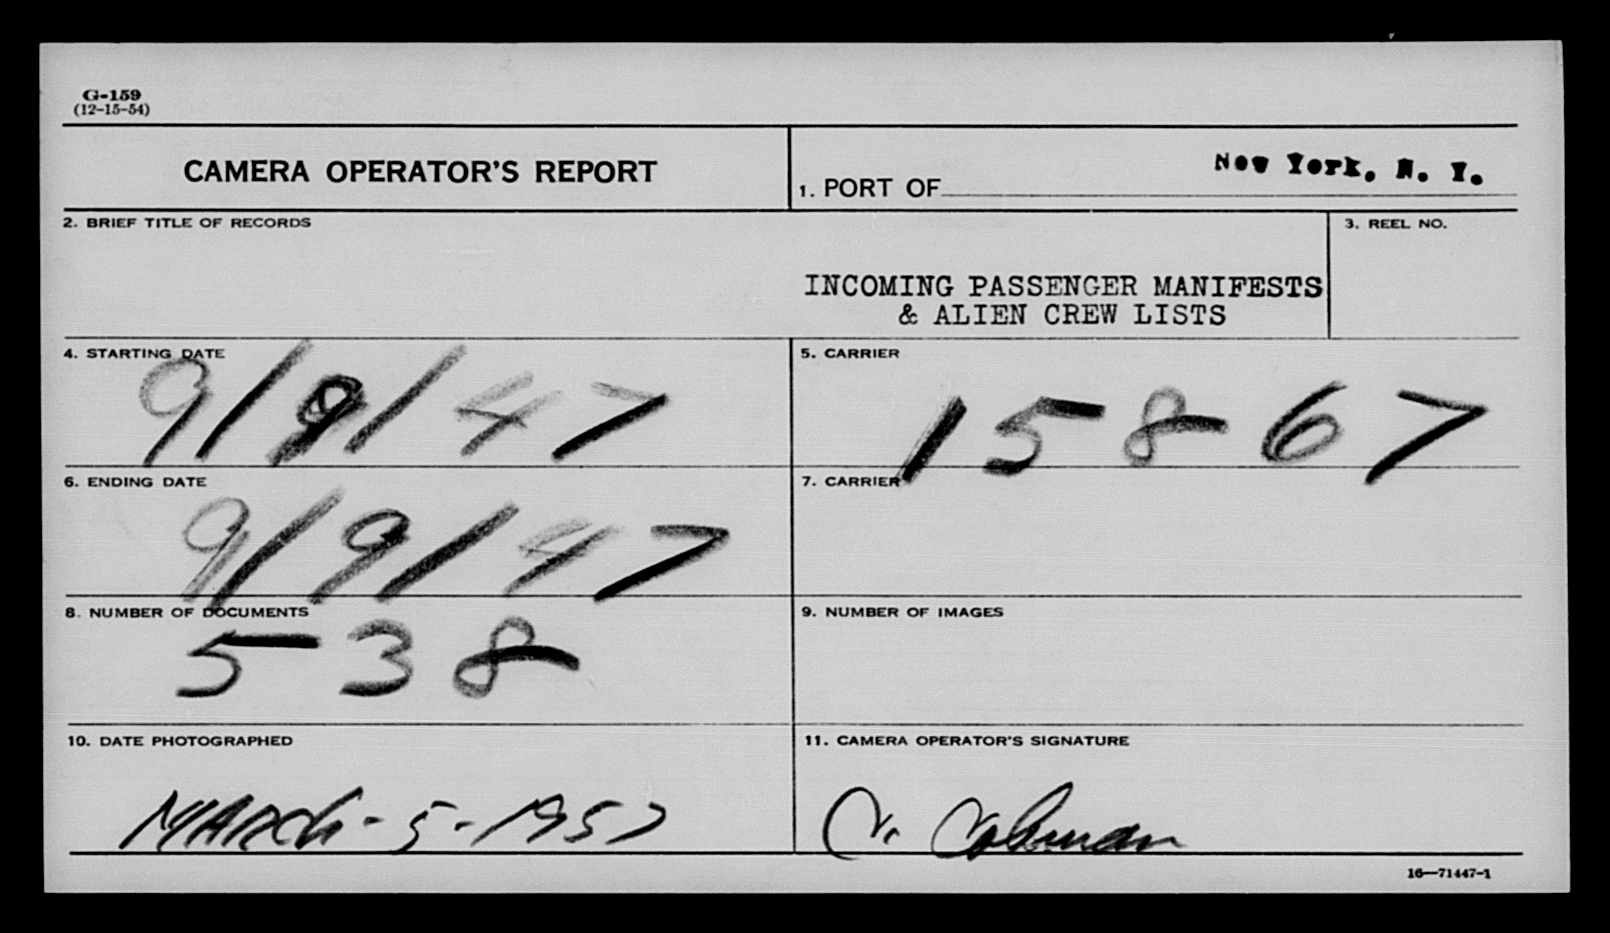 G-159
(12-15-54)
CAMERA OPERATOR'S REPORT
1. PORT OF New York, N. Y.
2. BRIEF TITLE OF RECORDS
3. REEL NO.
INCOMING PASSENGER MANIFESTS
& ALIEN CREW LISTS
4. STARTING DATE
9/9/47
5. CARRIER
15867
6. ENDING DATE
9/9/47
7. CARRIER
8. NUMBER OF DOCUMENTS
538
9. NUMBER OF IMAGES
10. DATE PHOTOGRAPHED
MARCH-5-1957
11. CAMERA OPERATOR'S SIGNATURE
16—71447-1